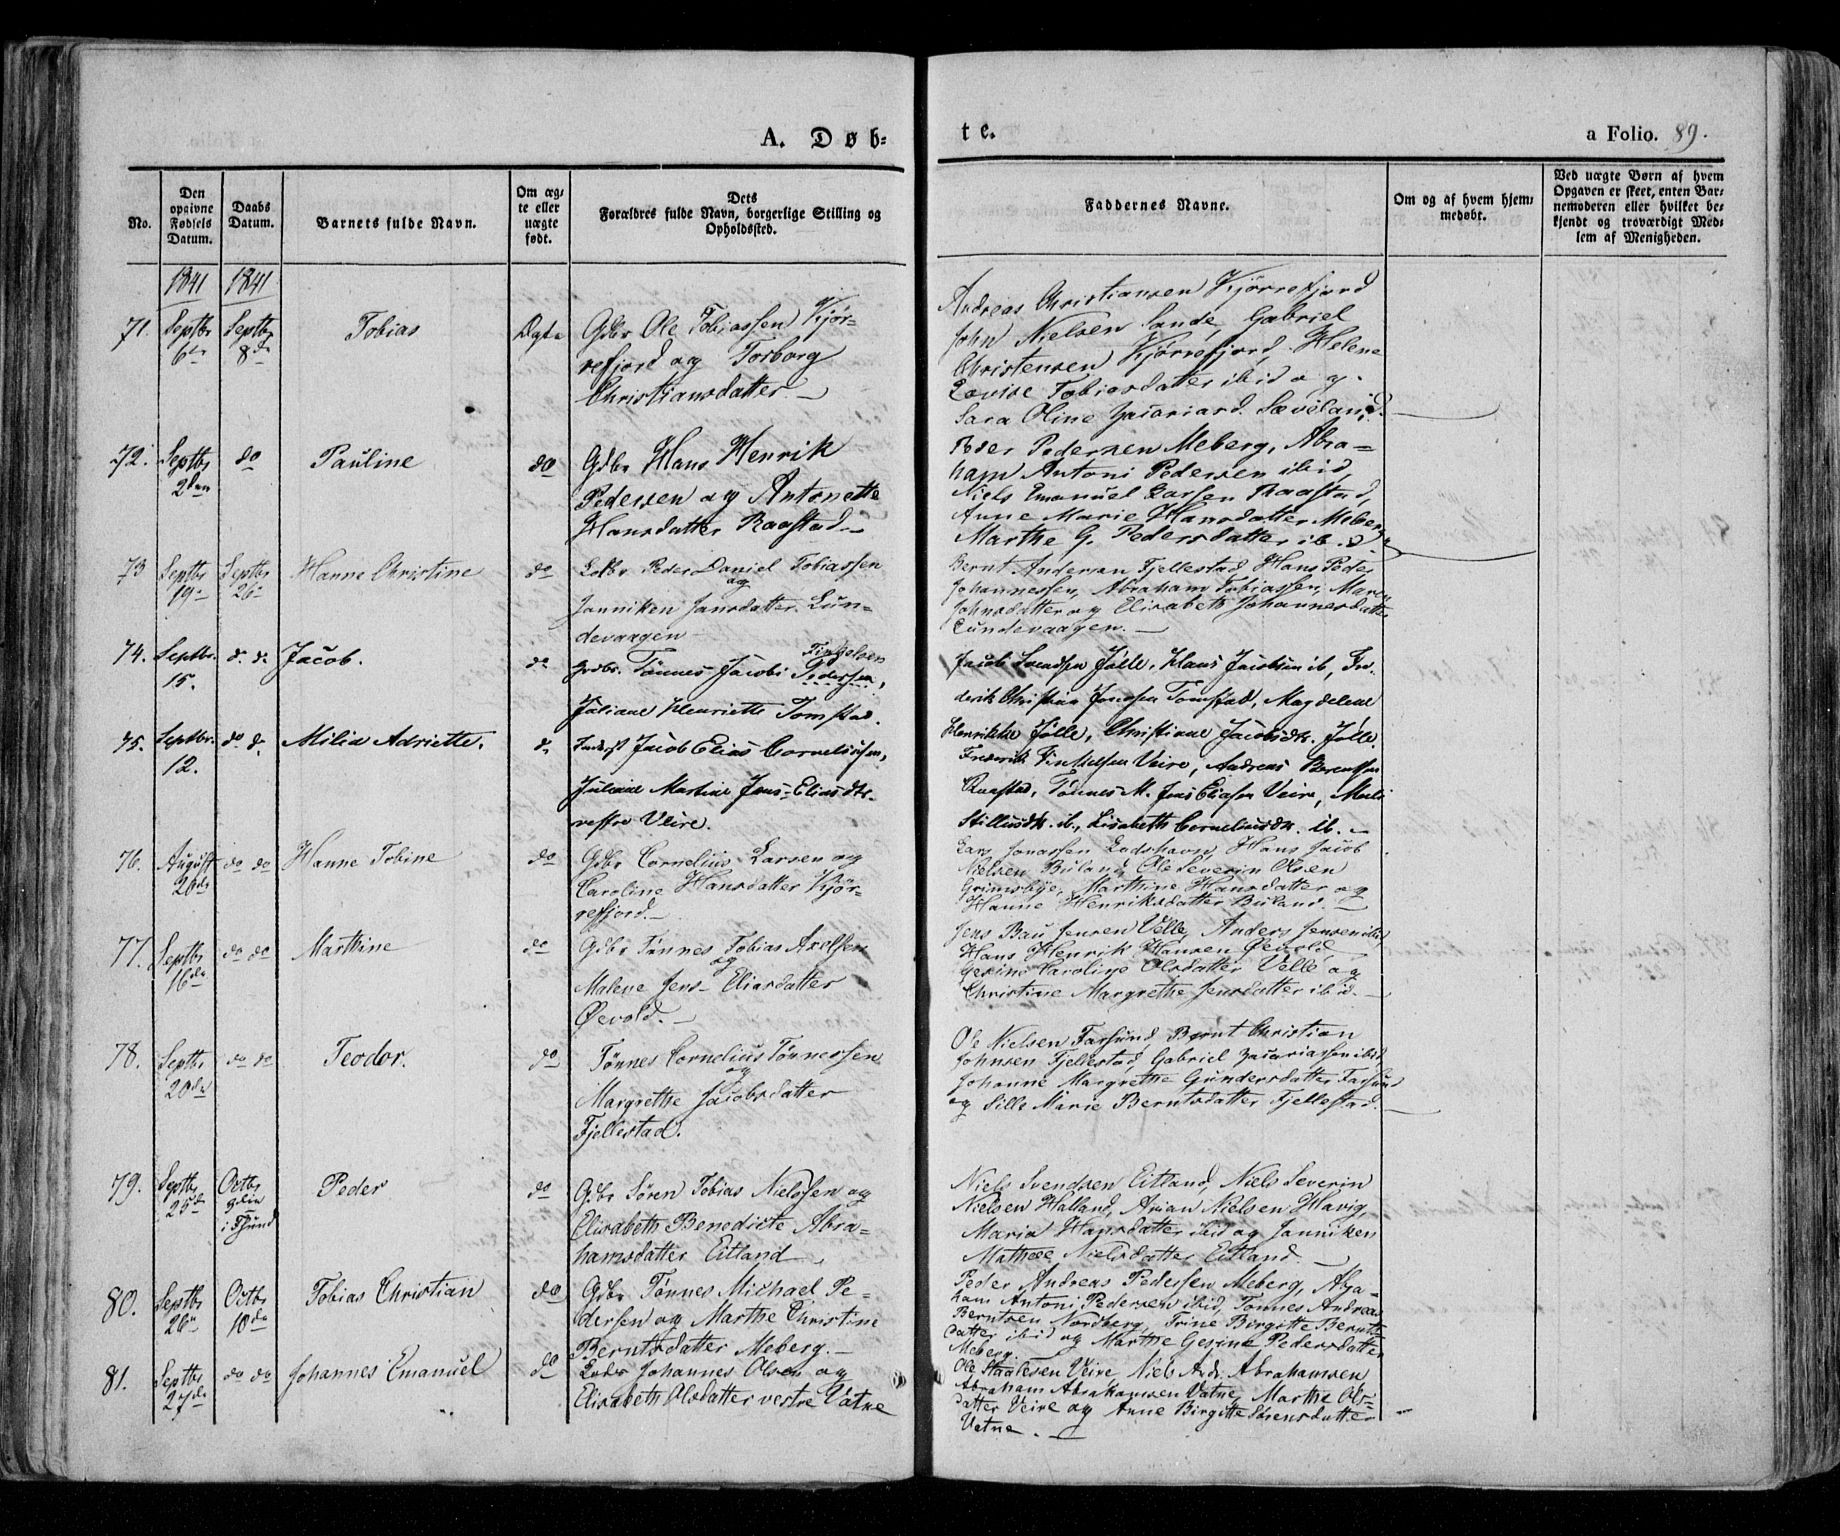 A. Døb-
te.
a Folio. 89.
No.
Den
opgivne
Fødsels
Datum.
Daabs
Datum.
Barnets fulde Navn.
Om æg-
te eller
uægte
født.
Dets
Forældres fulde Navn, borgerlige Stilling og
Opholdssted.
Faddernes Navne.
Om og af hvem hjem-
medøbt.
Ved uægte Børn af hvem
Opgaven er skeet, enten Bar-
nemoderen eller hvilket be-
kjendt og troværdigt Med-
lem af Menigheden.
1841 1841
71. Septbr Septbr Tobias Ægte
6te 8de
Gdbr Ole Tobiassen Kjör-
refjord og Torborg
Christiansdatter. —
Andreas Christiansen Kjörrefjord
John Nielsen Sande, Gabriel
Christensen Kjörrefjord, Helene
Lovise Tobiasdatter ibid og
Sara Oline Zacariasd. Sæveland.
72. Septbr do Pauline do
2den
Gdbr Hans Henrik
Pedersen og Antonette
Hansdatter Raastad. —
Peder Pedersen Meberg, Abra-
ham Antoni Pedersen ibid,
Niels Emanuel Larsen Raastad,
Anne Marie Hansdatter Meberg
Marthe G. Pedersdatter ib.
73 Septbr Septbr Hanne Christine do
19de 26de
Peder Daniel Tobiassen
og
Janniken Jansdatter Lun-
devaagen —
Bernt Andersen Fjellestad, Hans Peder
Johannessen, Abraham Tobiassen, Maren
Johnsdatter og Elisabeth Johannesdatter
Lundevaagen. —
74. Septbr. d. d. Jacob. do
15.
Gdbr. Tönnes Jacobi Pedersen,
Juliane Henriette Tomstad.
Jacob Svendsen Jölle, Hans Jacobsen ib, Fre-
derik Christian Tomstad, Magdelene
Henrikke Jölle, Christiane Jacobsdtr. Jölle.
75. Septbr. do d. Milia Adriette. d.
12.
Jacob Elias Corneliussen,
Juliane Martine Jens-Eliasdtr.
vestre Veire.
Frederik Veire, Andreas Berentsen
Raastad, Tönnes M. Jens Eliasen Veire,
ib., Lisabeth Corneliusdtr. ib. —
76. August do do Hanne Tobine do
20de
Gdbr Cornelius Larsen og
Caroline Hansdatter Kjör-
refjord. —
Lars Jonassen Lodshavn, Hans Jacob
Nielsen Buland, Ole Severin Olsen
Grimsbye, Marthine Hansdatter og
Hanne Henriksdatter Buland. —
77. Septbr do do Marthine do
16de
Gdbr Tönnes Tobias Axelsen
og
Malene Jens-Eliasdatter
Øevold. —
Jens Bau Jensen Velle, Anders Jensen ibid,
Hans Henrik Hansen Øevold,
Gesine Caroline Olsdatter Velle og
Christine Margrethe Jensdatter ibid. —
78. Septbr do do Teodor. do
20de
Tönnes Cornelius Tönnessen
og
Margrethe Jacobsdatter
Fjellestad.
Ole Nielsen Farsund, Bernt Christian
Johnsen Fjellestad, Gabriel Zacariassen ibid
Johanne Margrethe Gundersdatter Farsund
og Sille Marie Berntsdatter Fjellestad.
79. Septbr Octbr Peder do
25de 3die
i Fsund
Gdbr Sören Tobias Nielssen og
Elisabeth Benedicte Abra-
hamsdatter Eitland
Niels Svendsen Eitland, Niels Severin
Nielsen Halland, Arian Nielsen Havig,
Maria Hansdatter ibid og Janniken
Mathea Nielsdatter Eitland. —
80. Septbr Octbr Tobias Christian do
26de 10de
Gdbr Tönnes Michael Pe-
dersen og Marthe Christine
Berntsdatter Meberg. —
Peder Andreas Pedersen Meberg, Abra-
ham Antoni Pedersen ibid, Tönnes Andreas
Berntsen Nordberg, Trine Birgitte Bernts-
datter ibid og Marthe Gesine Pedersdatter
Meberg.
81. Septbr do do Johannes Emanuel do
27de
Johannes Olsen og
Elisabeth Olsdatter vestre Vatne
Ole Staalesen Veire, Niels Andr. Abrahamsen
Abraham Abrahamsen Vatne, Marthe Ols-
datter Veire og Anne Birgitte Sörensdatter
Vatne. —